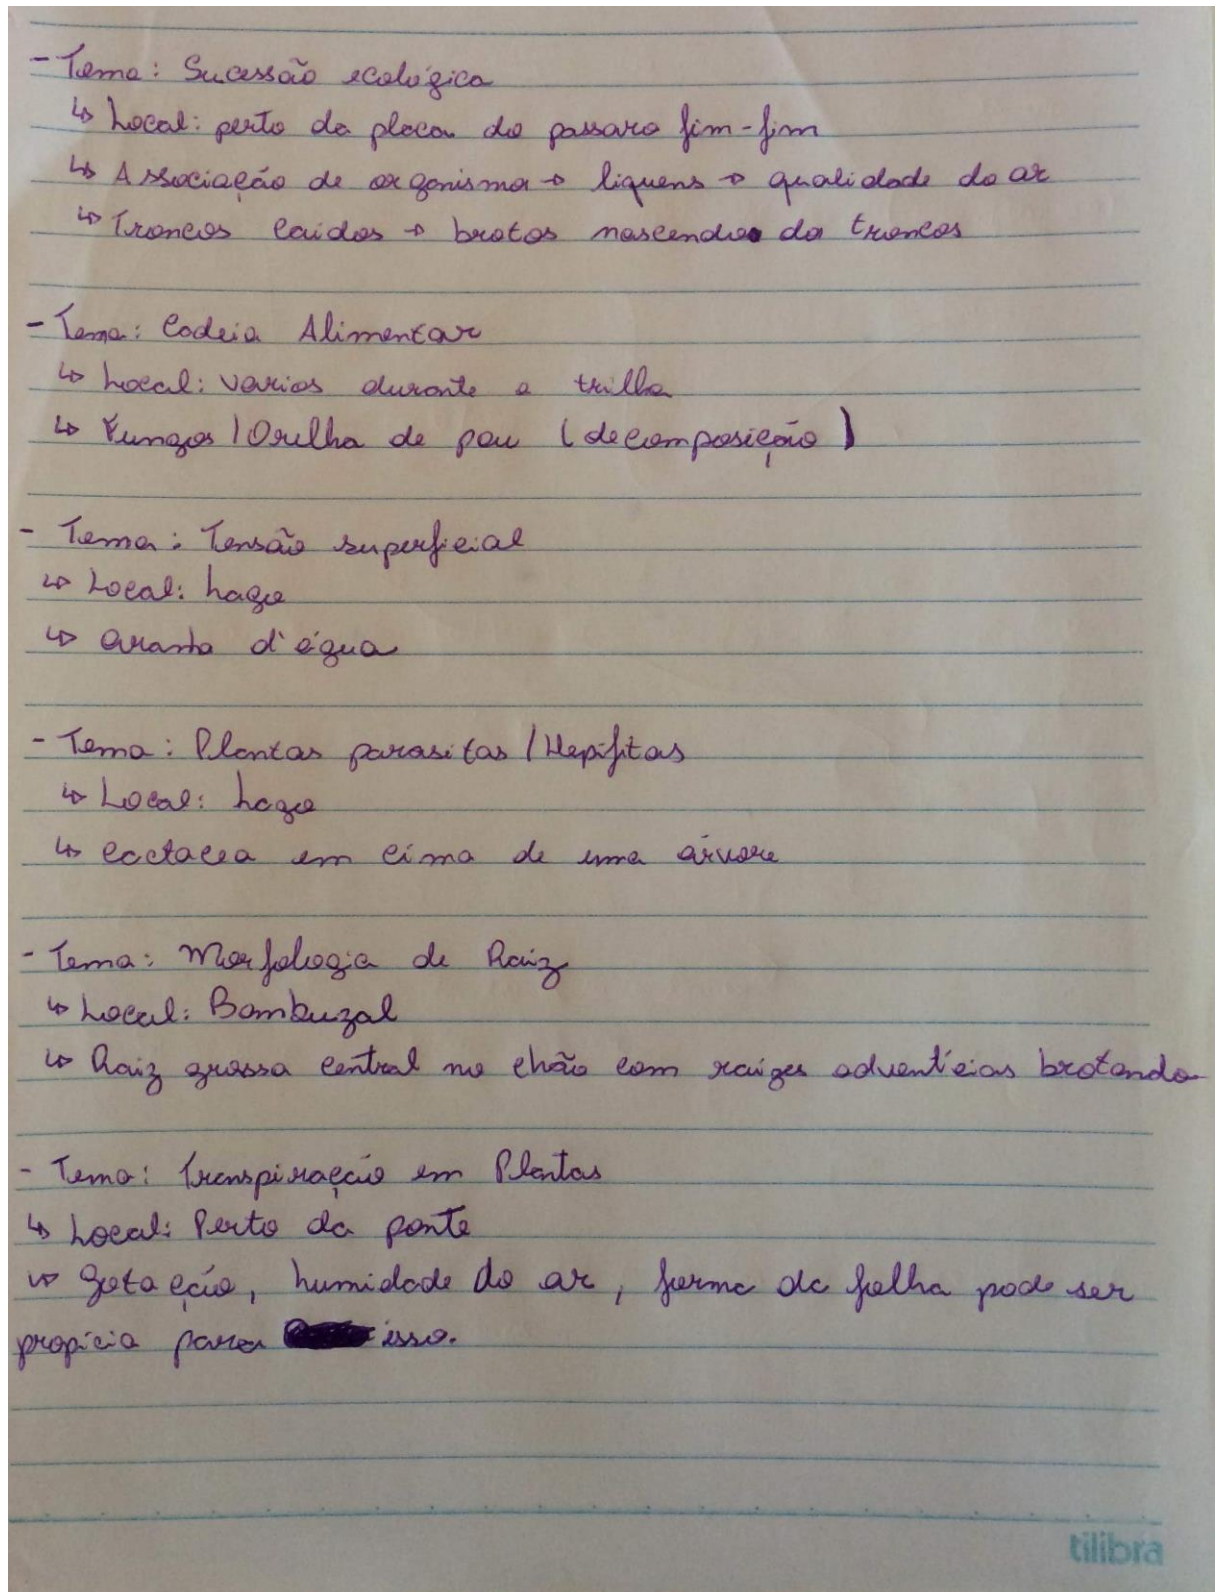 - Tema: Sucessão ecológica
↳ Local: perto da placa do passaro fim-fim
↳ Associação de organismos → liquens → qualidade do ar
↳ Troncos caídos → brotos nascendo do troncos
- Tema: Cadeia Alimentar
↳ Local: varios durante a trilha
↳ Fungos / Orelha de pau (decomposição)
- Tema: Tensão superficial
↳ Local: Lago
↳ aranha d'água
- Tema: Plantas parasitas / Hepífitas
↳ Local: Lago
↳ cactacea em cima de uma árvore
- Tema: Morfologia de Raiz
↳ Local: Bambuzal
↳ Raiz grossa central no chão com raízes adventícias brotando
- Tema: Transpiração em Plantas
↳ Local: Perto da ponte
↳ gotação, humidade do ar, forma da folha pode ser
propícia para isso.
tilibra